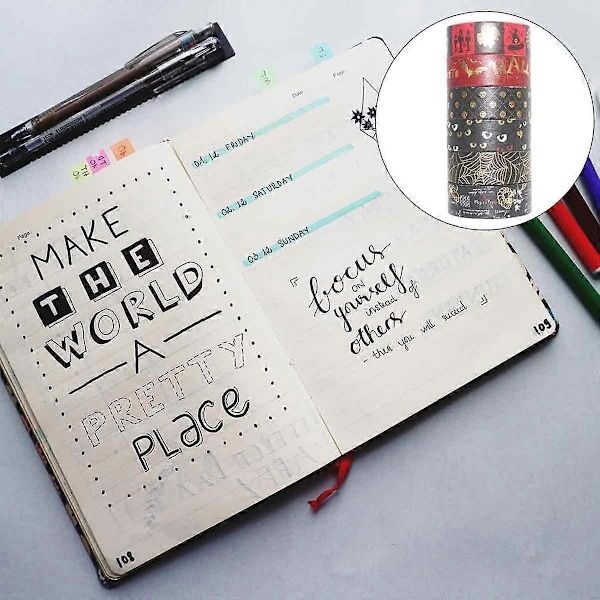 Page
MAKE
THE
WORLD
A
PRETTY
PLACE
108
Date
Page
01. 12 FRIDAY
02. 12 SATURDAY
03. 12 SUNDAY
focus
on
yourself
instead of
others
- then you will succeed
109